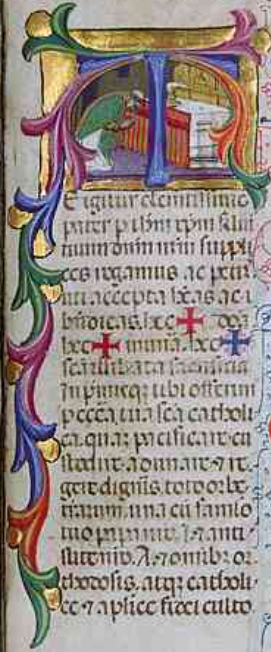 T
E igitur clementissime
pater p ihm xpm filiū
tuum dnm nrm suppli
ces rogamus ac peti
mus accepta hēas ac b
n̄dicas. hec ✠ dōa
hec ✠ munera. hec ✠
scā illibata sacrificia
In primisq tibi offerim
p eccā tua scā catholi
ca. quaȝ pacificare cu
stodire adunare ⁊ re
gere digneris. toto orbe
terrarum. una cū famlo
tuo papa nr̄o. N. ⁊ anti
stite nr̄o. N. ⁊ omībȝ or
thodoxis. atqȝ catholi
ce ⁊ aplice fidei culto